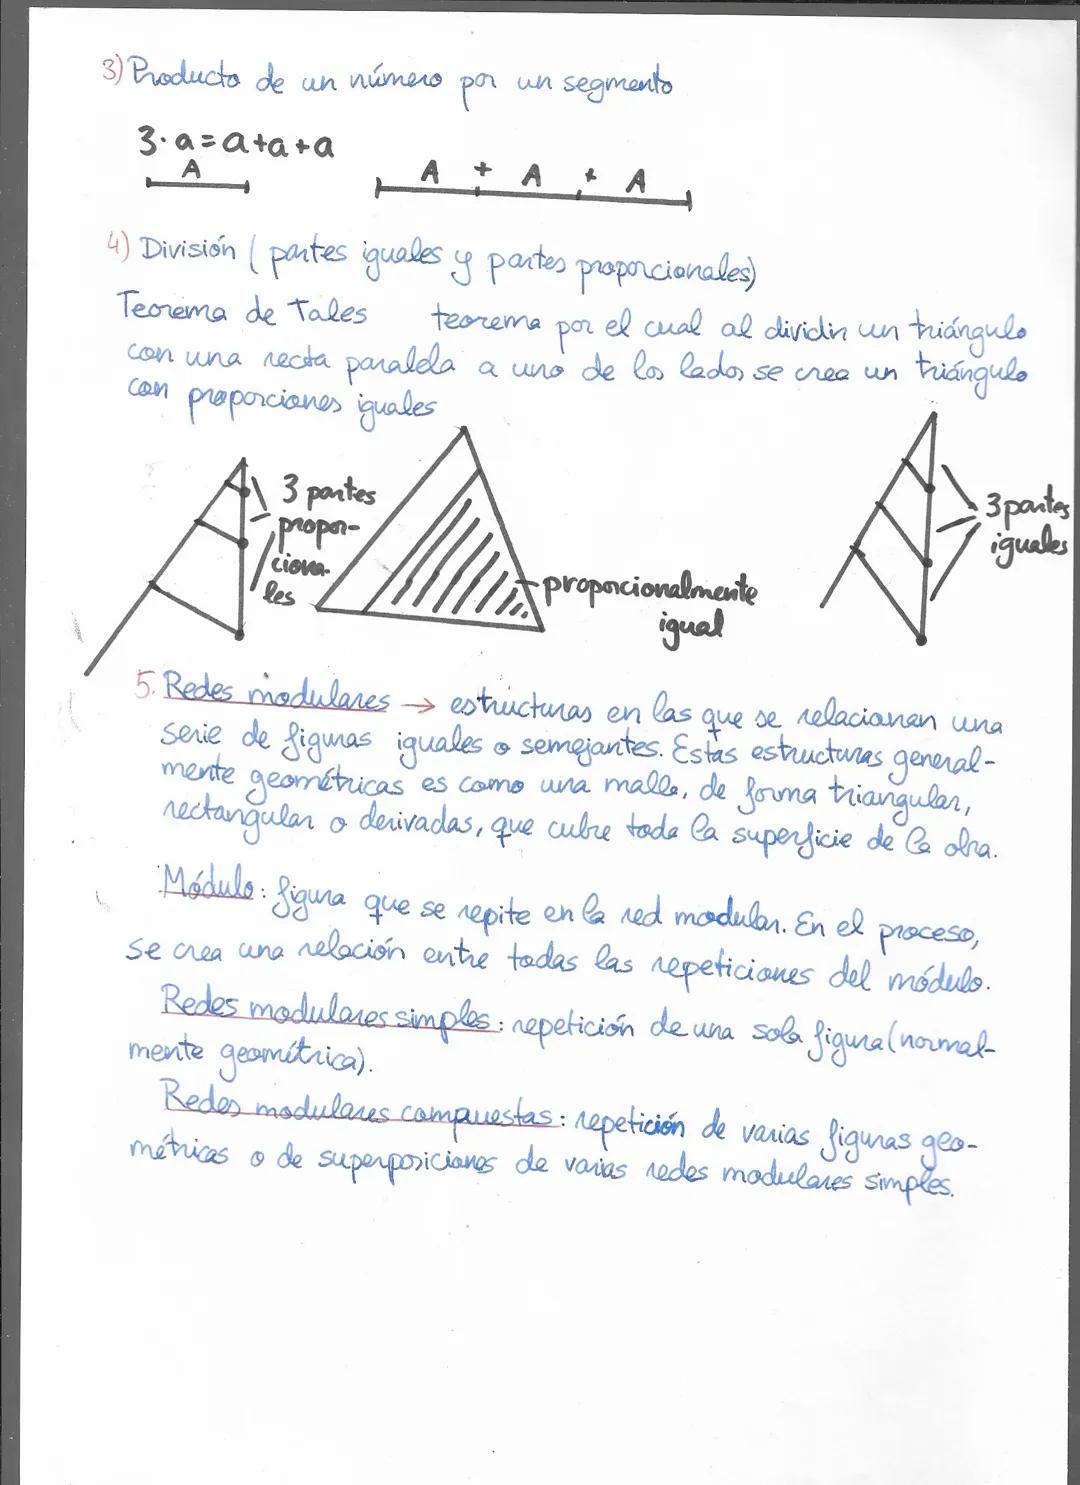 3) Producto de un número por un segmento
3·a=a+a+a
A
A + A + A
4) División (partes iguales y partes proporcionales)
Teorema de Tales teorema por el cual al dividir un triángulo
con una recta paralela a uno de los lados se crea un triángulo
con proporciones iguales
3 partes
propor-
ciona-
les
proporcionalmente
igual
3 partes
iguales
5. Redes modulares → estructuras en las que se relacionan una
serie de figuras iguales o semejantes. Estas estructuras general-
mente geométricas es como una malla, de forma triangular,
rectangular o derivadas, que cubre toda la superficie de la obra.
Módulo: figura que se repite en la red modular. En el proceso,
se crea una relación entre todas las repeticiones del módulo.
Redes modulares simples: repetición de una sola figura (normal-
mente geométrica).
Redes modulares compuestas: repetición de varias figuras geo-
métricas o de superposiciones de varias redes modulares simples.